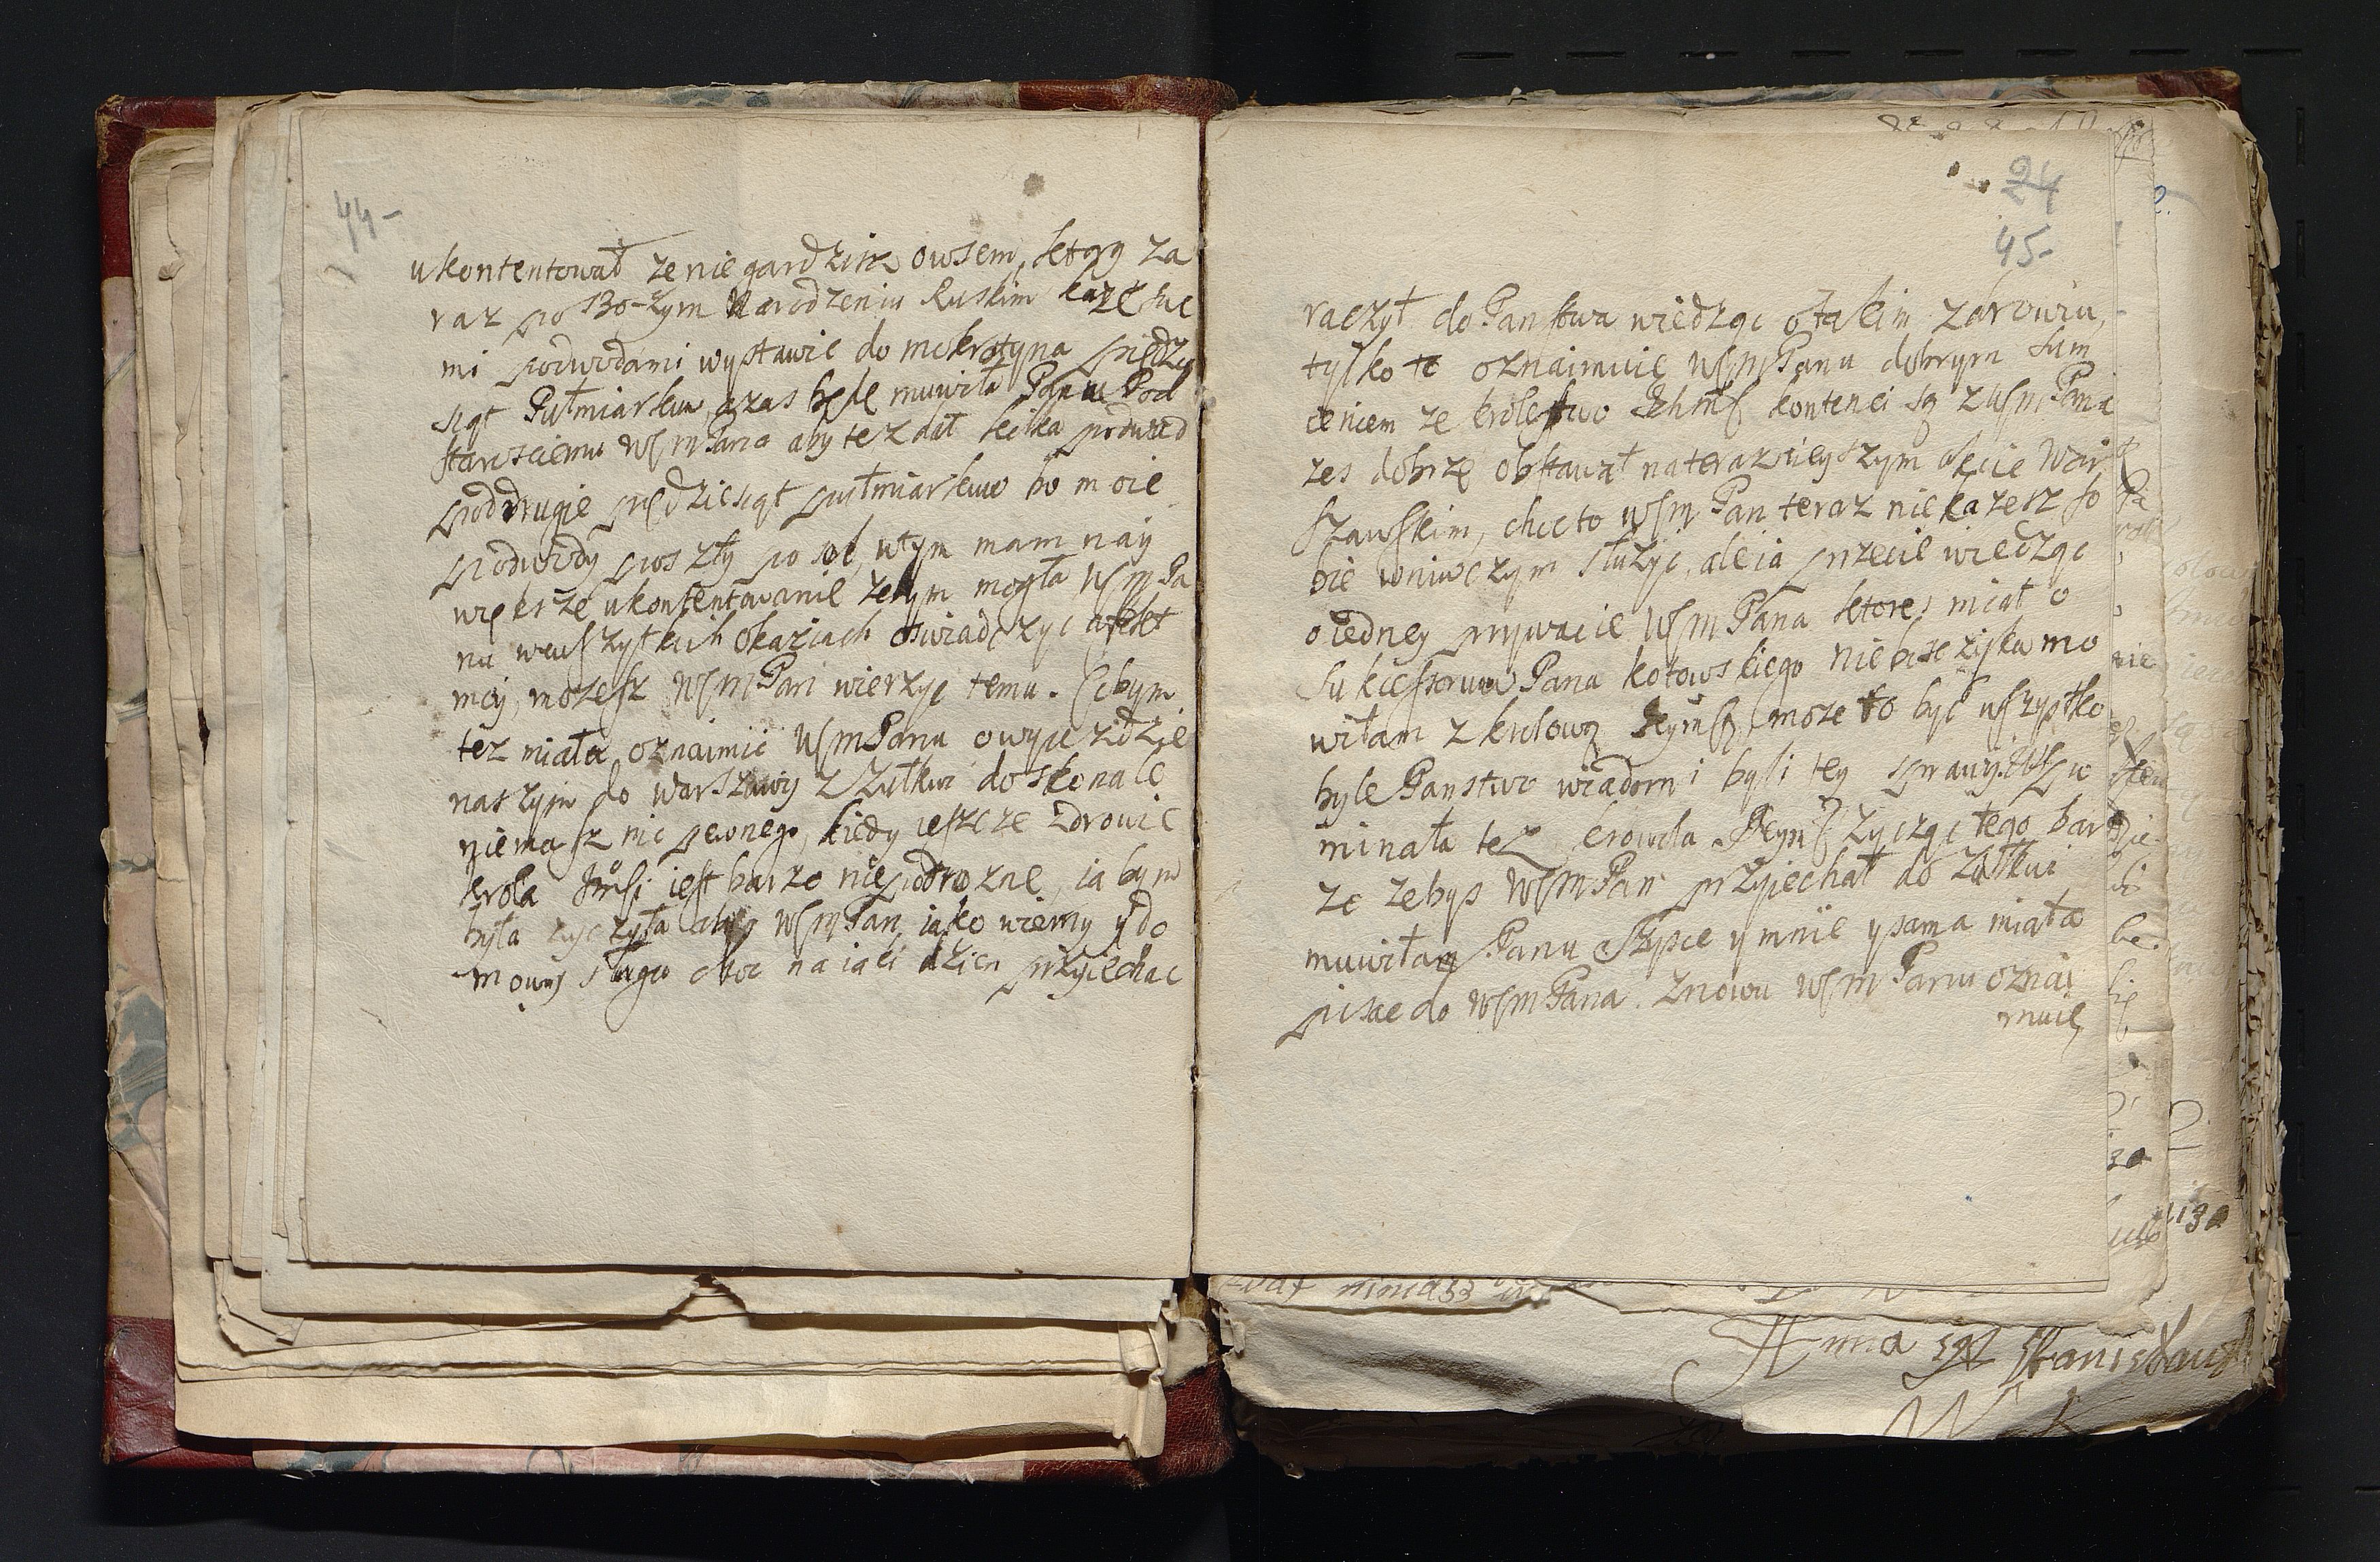 44-
ukontentował ze nie gardzisz owsem, ktory za
raz po Bo-zym Narodzeniu Ruskim kazę swe
mi podwodami wystawic do mokrotyna piędzie
siąt Pułmiarkow, a zas będę muwiła Panu Pod
starosciemu WsmPana aby tez dał kilka podwod
pod drugie piędziesiąt pułmiarkuw bo moie
podwody poszły po sol, w tym mam nay
większe ukontentowanie ze bym mogła WsmPa
nu we wszystkich okaziach oswiadczyc afekt
moy, mozesz WsmPan wierzyc temu. Co bym
tez miała oznaimic WsmPanu o wyiezdzie
naszym do Warszawy z Zułkwi doskonale
niemasz nic pewnego, kiedy ieszcze zdrowie
krola Jmsi iest barzo nie podrozne, ia bym
była zyczyła abys WsmPan iako wierny y do
mowy sługa choc na iaki dzien przyiechac
24
45-
raczył do Panstwa wiedząc o takim zdrowiu,
tylko to oznaimuię WsmPanu dobrym sum
ieniem ze krolestwo Ichms kontenci są z WsmPana
zes dobrze obstawał na teraznieyszym akcie War
szawskim, choc to WsmPan teraz nie kazesz so
bie w niwczym słuzyc, ale ia przecie wiedząc
o iedney prywacie WsmPana ktores miał o
sukcessoruw Pana kotowskiego nieboszczyka mo
wiłam z krolową Jeymsz, moze to byc wszystko
byle Panstwo wiadomi byli tey sprawy. Wspo
minała tez krowla Jeyms zycząc tego bar
zo zebys WsmPan przyiechał do Zułkwi
muwiłam Panu Szpice y mnie y sama miała
pisac do WsmPana. Znowu WsmPanu oznai
muię
Anna